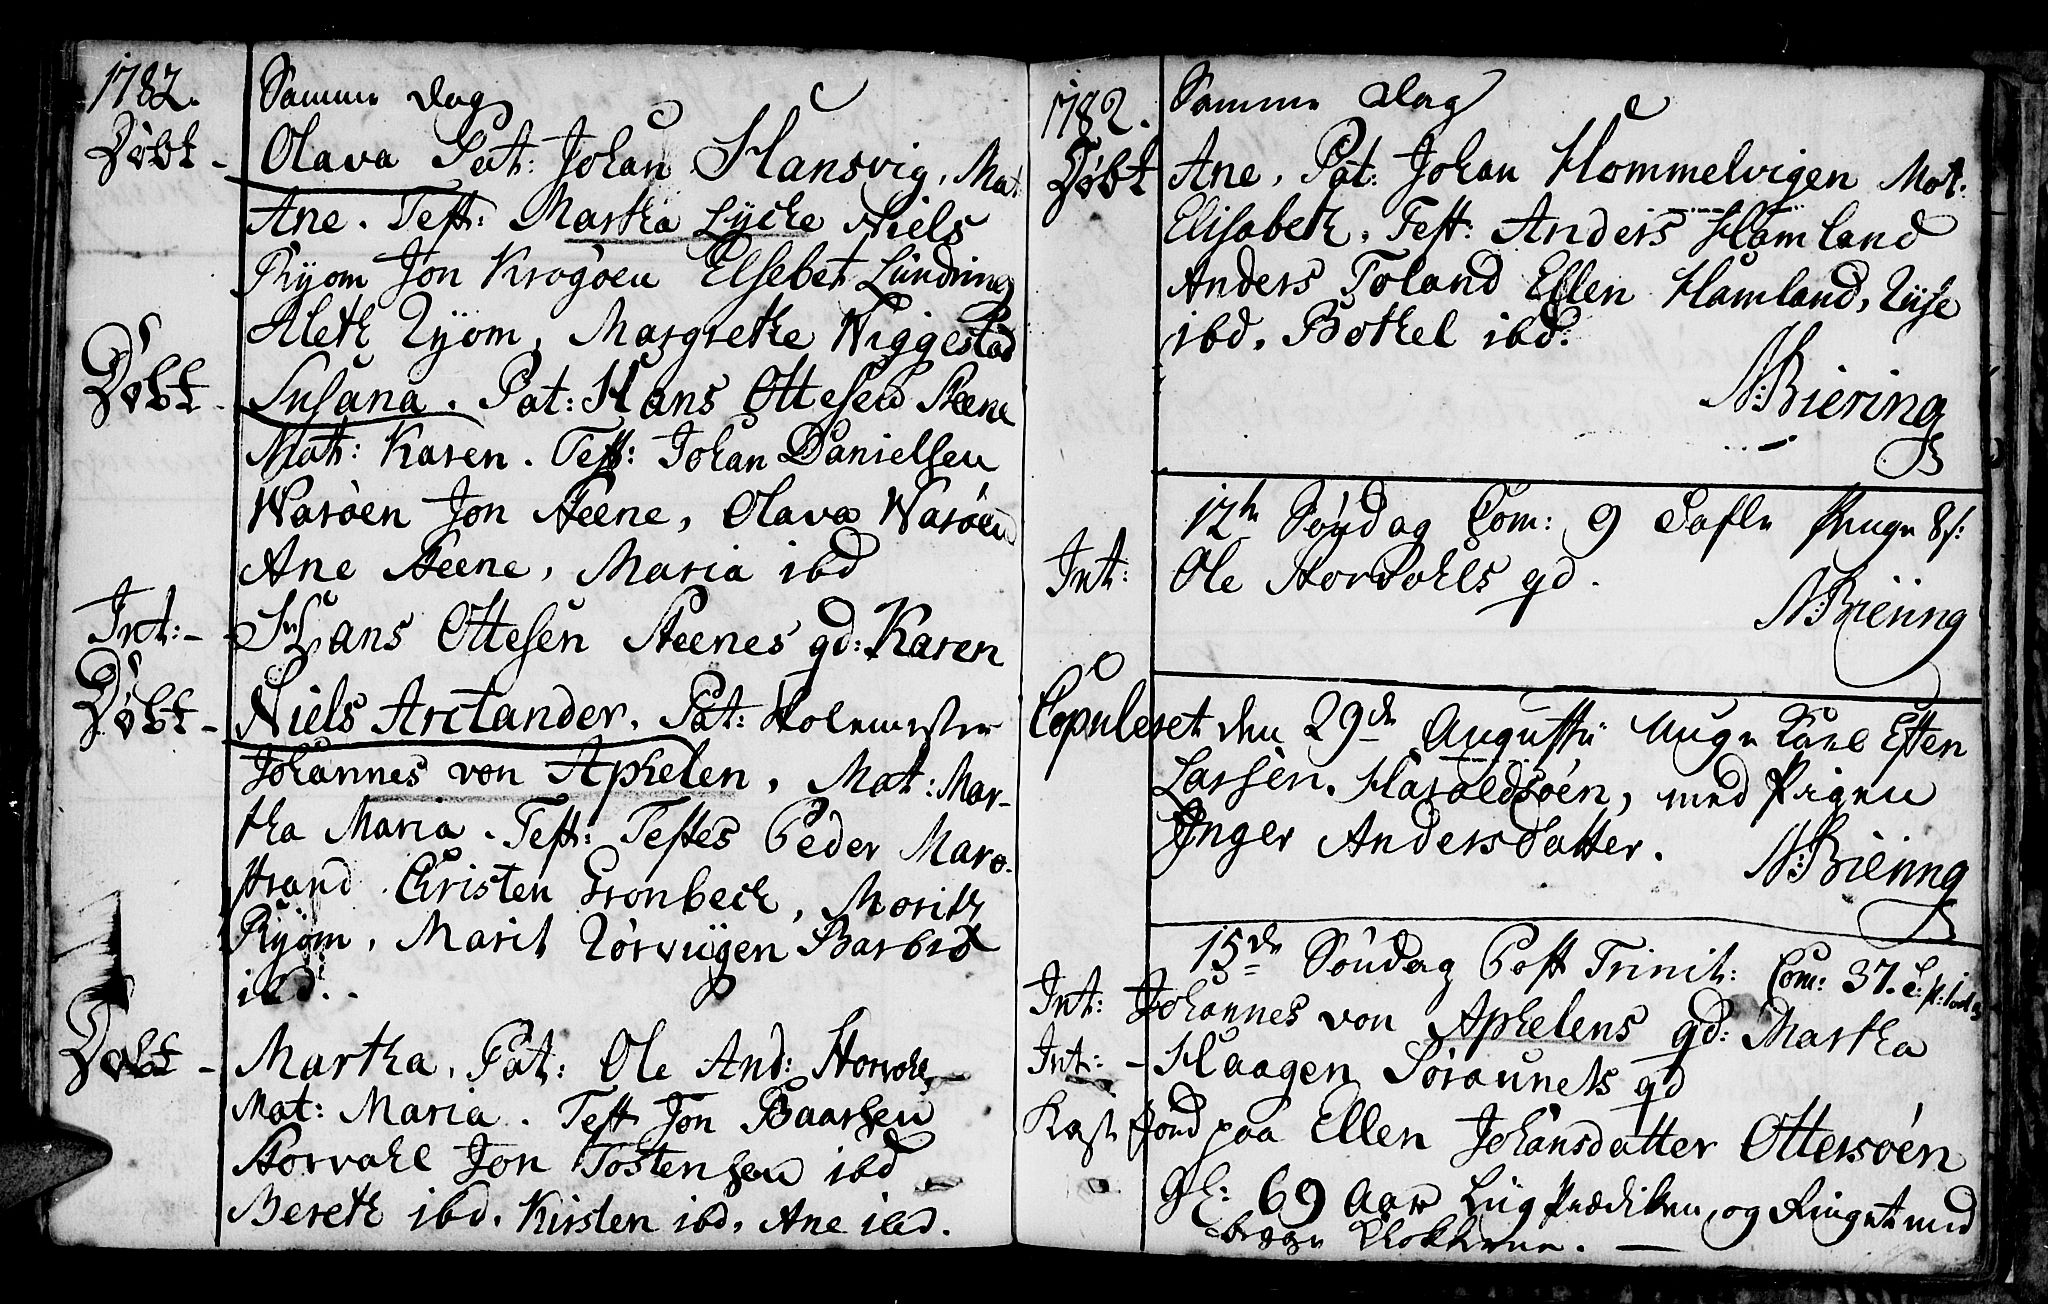 1782. Samme Dag
Døbt - Olava Pat: Johan Hansvig, Mat:
Ane. Test: Martha Lycke Niels
Ryom Jon Krogøen Elsebet Lundring
Aleth Ryom, Margrethe Wiggestad
Døbt - Susana. Pat: Hans Ottesen Steene
Mat: Karen. Test: Johan Danielsen
Warøen Jon Steene, Olava Warøen
Ane Steene, Maria ibd
Int: - Hans Ottesen Steenes gd: Karen
Døbt - Niels Arctander. Pat: Skolemester
Johannes von Aphelen, Mat: Mar-
tha Maria. Test: Testes Peder Mare-
strand Christen Grønbech, Morith
Ryom, Marit Børvigen Barbrd
ibd.
Døbt - Martha, Pat: Ole And: Storvohl
Mat: Maria. Test Jon Baarsen
Storvohl Jon Tostensen ibd
Bereth ibd. Kirsten ibd. Ane ibd.
1782. Samme Dag
Døbt Ane, Pat: Johan Hommelvigen Mat:
Elisabeth. Test: Anders Hamland
Anders Foland Ellen Hamland,
ibd. Bothel ibd:
N: Biering
12te Søndag Com: 9
Int: Ole Storvohls gd.
N: Biering
Copuleret den 29de Augustii Unge Karl Esten
Larsen. Haroldsøen, med Pigen
Inger Andersdatter.
N: Biering
15de Søndag Post Trinit: Com: 37.
Int: Johannes von Aphelens gd: Martha
Int: - Haagen Søraunets gd
Kast Jord paa Ellen Johansdatter Ottersøen
gl: 69 Aar Liig Prædiken, og Ringet med
begge Klokkerne.